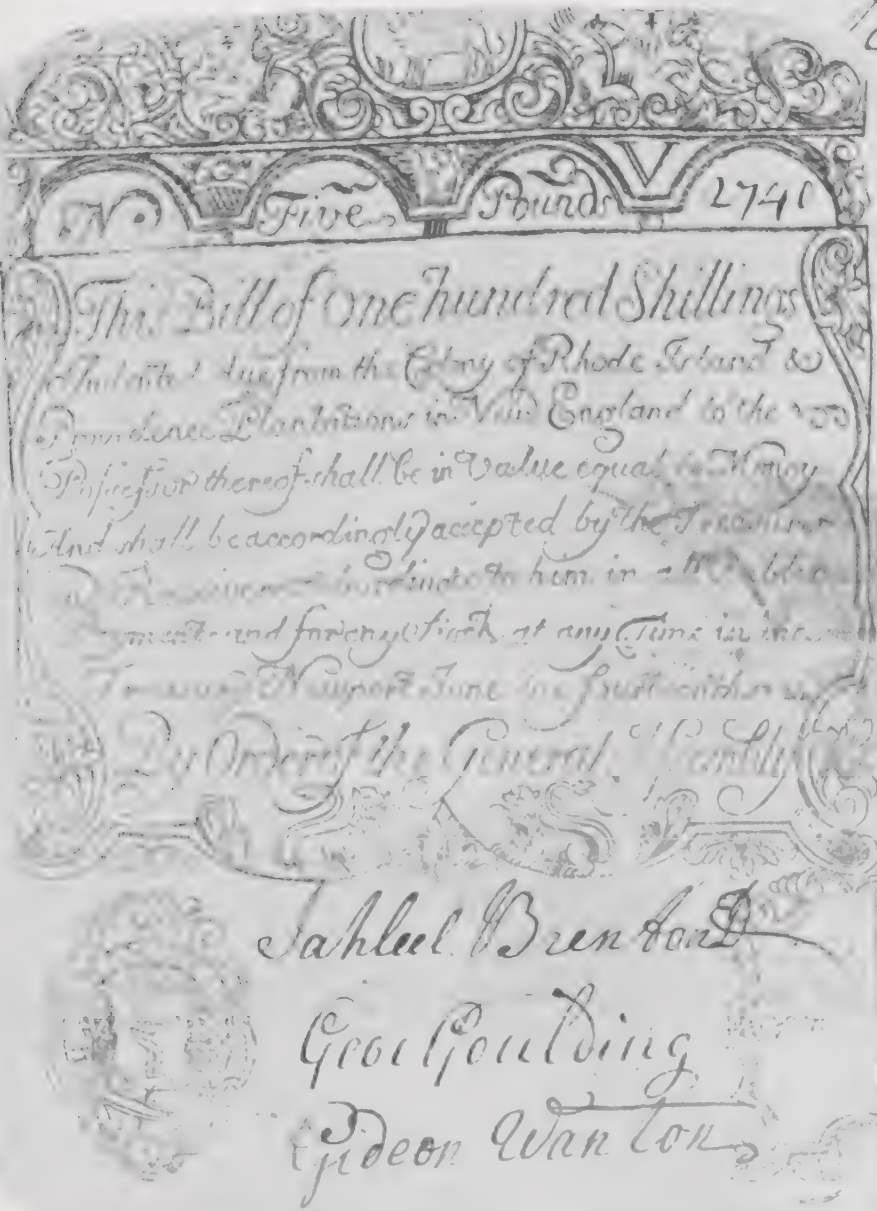 No Five Pounds 2741
This Bill of One hundred Shillings
due from the Colony of Rhode Island &
Providence Plantations in New England to the
Possessor thereof shall be in Value equal to Money
And shall be accordingly accepted by the Treasurer
him in all
and for any Stock at any Time in
Newport June
By Order of the General Assembly
Jahleel Brenton
Geor Goulding
Gideon Wanton